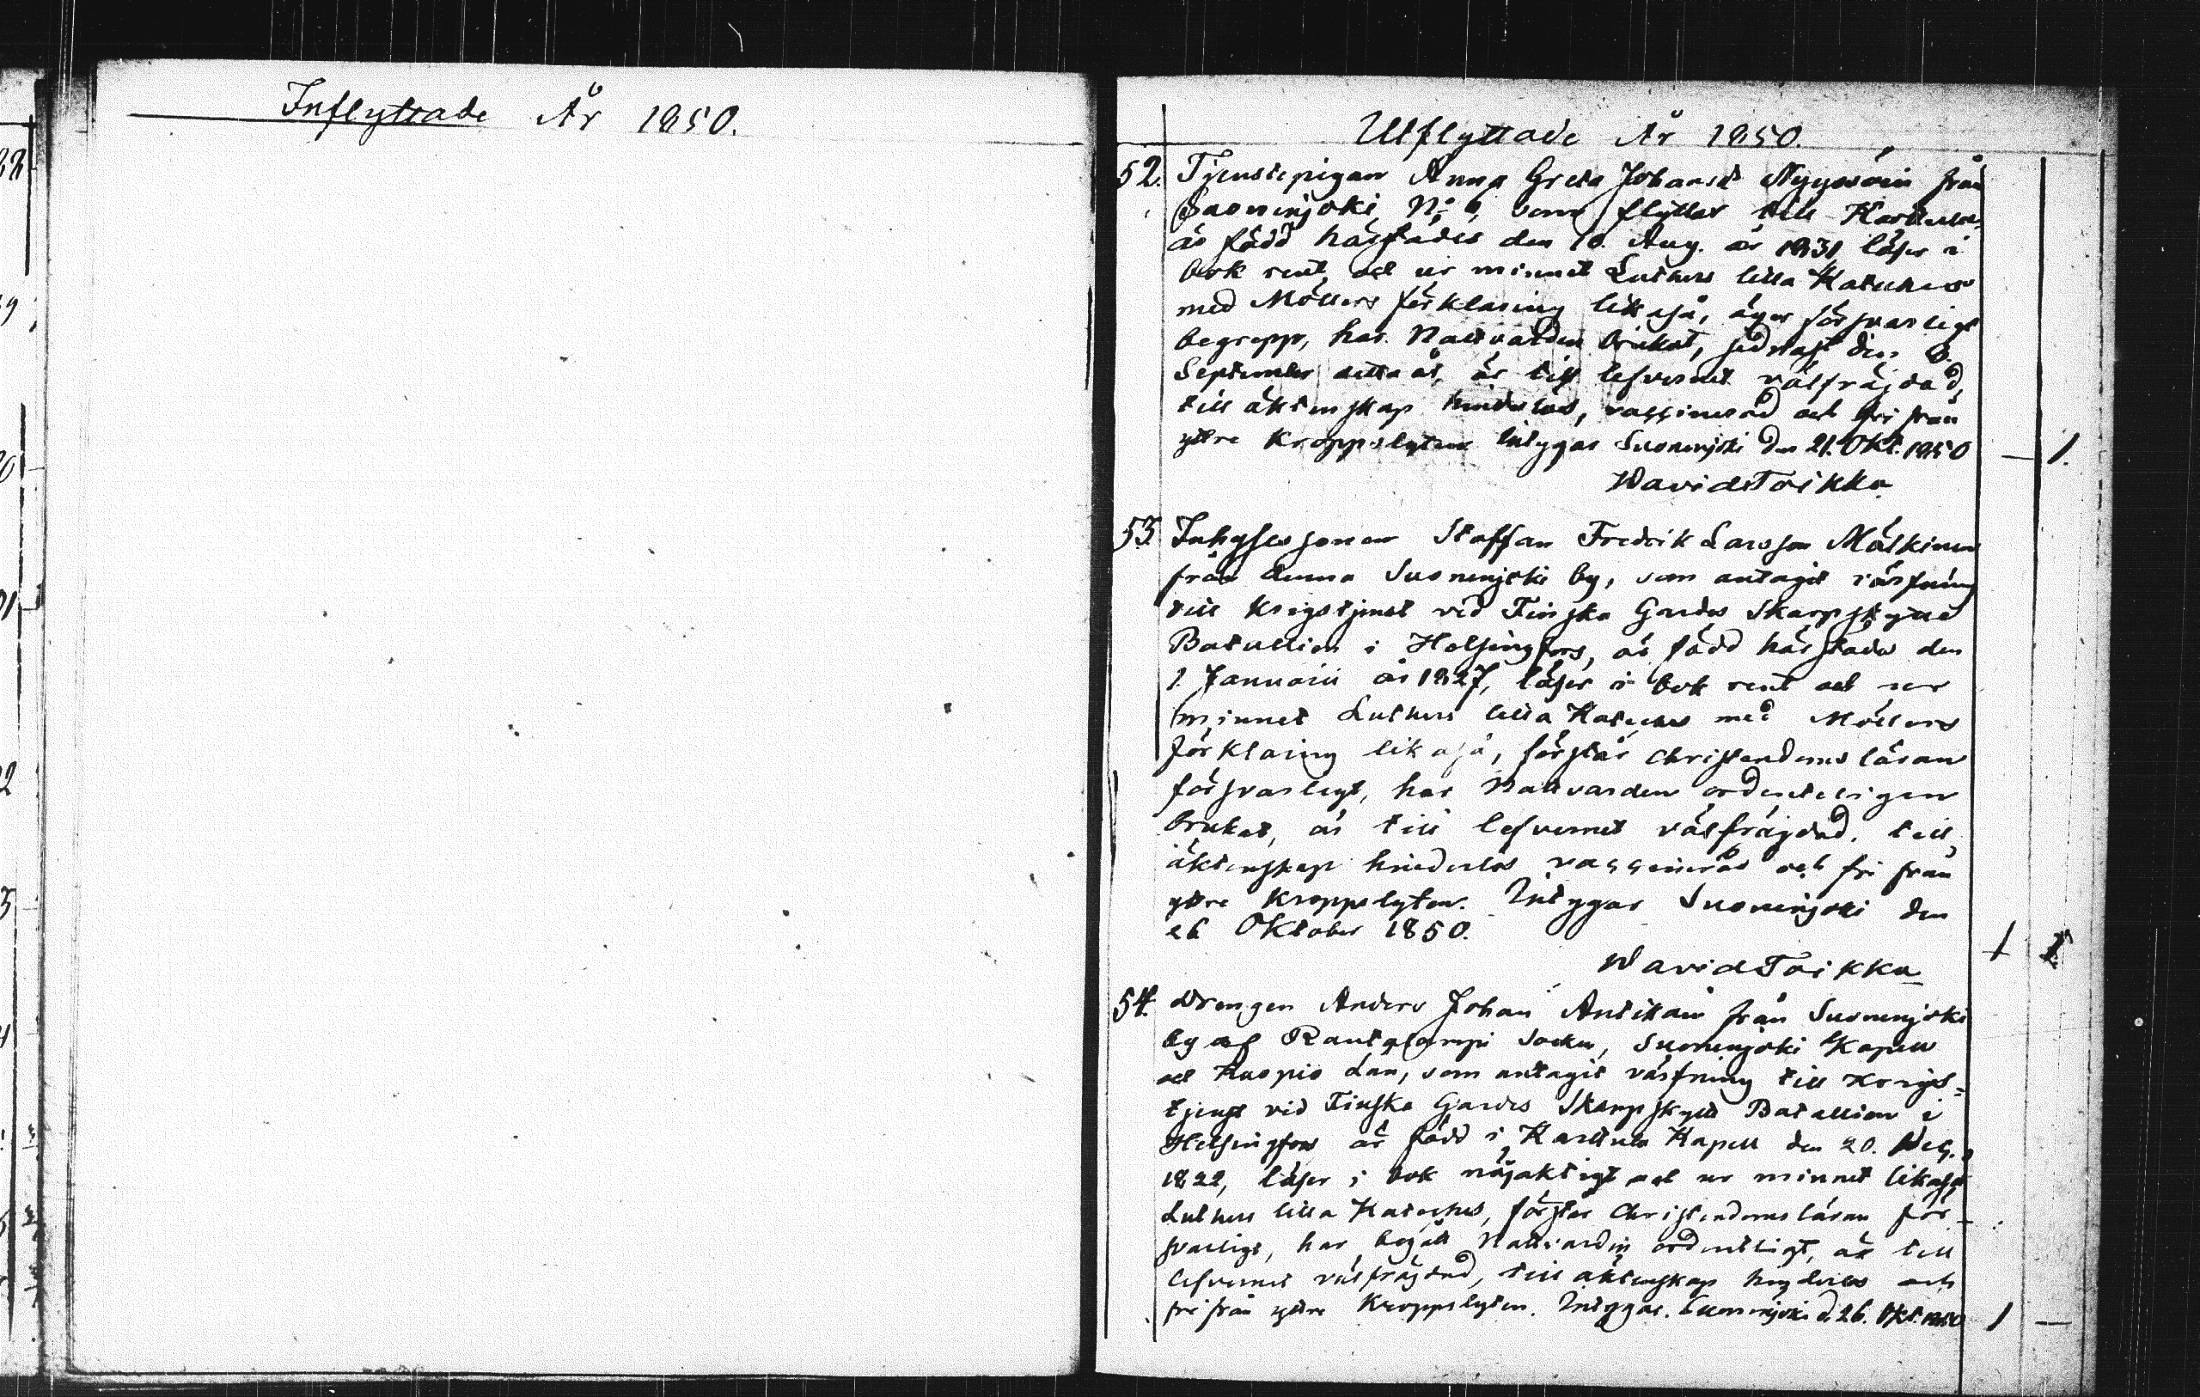 Inflyttade År 1850.
Utflyttade År 1850.
52. Tjenstepigan Anna Greta Johansd. Nyyssöin från
Suonenjoki N:o 6, som flyttar till Karttula,
är född härstädes den 10. Aug. år 1831, läser i
bok rent och ur minnet Luthers lilla Kateches
med Möllers förklaring likaså, äger försvarligt
begrepp, har Nattvarden brukat, sednast den 8.
September detta år, är till lefvernet välfräjdad,
till äktenskap hinderlös, vaccinerad och fri från
yttre kroppslyten intygar Suonenjoki den 21. Okt. 1850
— 1.
Wavid Toikka
53 Inhysessonen Staffan Fredrik Larsson Mäkinen
från denna Suonenjoki by, som antagit värfning
till krigstjenst vid Finska Gardes Skarpskytte
Batallion i Helsingfors, är född härstädes den
1. Januarii år 1827, läser i bok rent och ur
minnet Luthers lilla Kateches med Möllers
förklaring likaså, förstår Christendomsläran
försvarligt, har Nattvarden ordenteligen
brukat, är till lefvernet välfräjdad, till
äktenskap hinderlös vaccinerad och fri från
yttre kroppslyten. Intygar Suonenjoki den
26 Oktober 1850.
1 1
Wavid Toikka
54. Drengen Anders Johan Antikain från Suonenjoki
by af Rautalampi Socken, Suonenjoki Kapell
och Kuopio Län, som antagit värfning till Krigs-
tjenst vid Finska Gardes Skarpskytte Batallion i
Helsingfors är född i Karttula Kapell den 20.
1822, läser i bok nöjaktigt och ur minnet likaså
Luthers lilla Kateches, förstår Christendomsläran för-
svarligt, har begått Nattvarden ordentligt, är till
lefvernet välfräjdad, till äktenskap hinderlös och
fri från yttre kroppslyten. Intygar. Suonenjoki d. 26. Okt. 1850
1 —